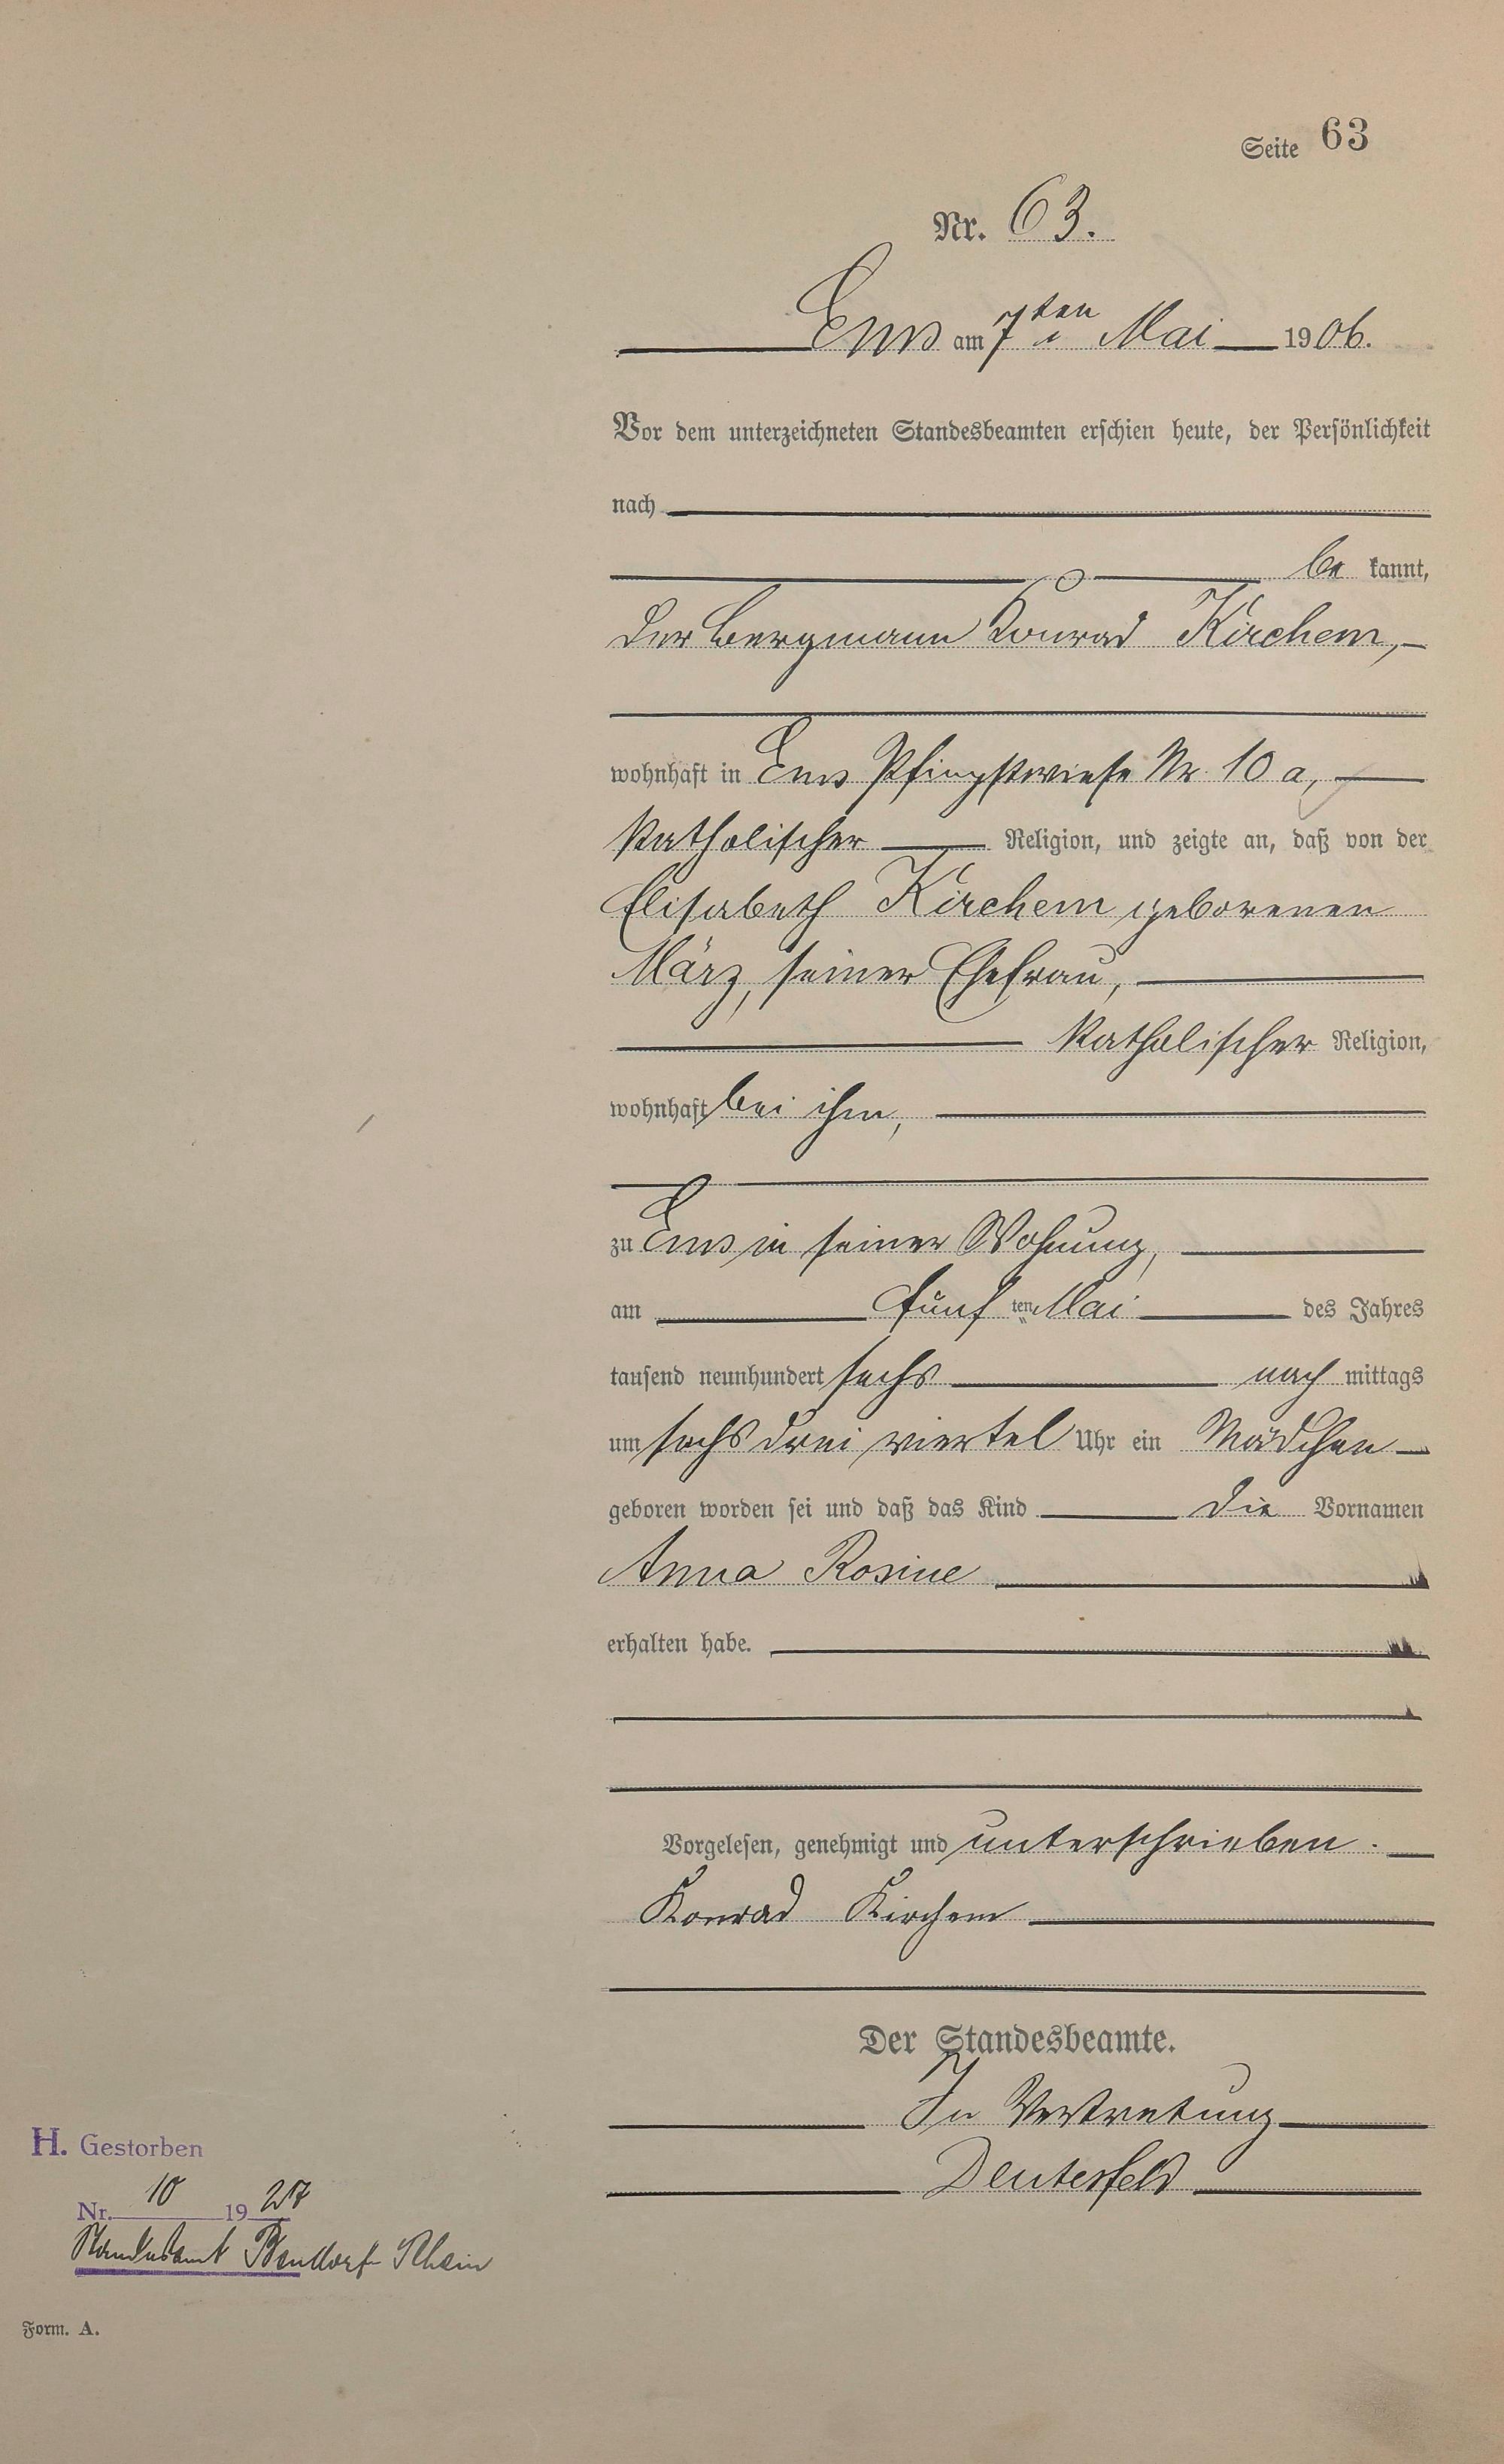 Seite 63
Nr. 63.
Ems am 7ten Mai 1906.
Vor dem unterzeichneten Standesbeamten erschien heute, der Persönlichkeit
nach
be kannt,
der Bergmann Konrad Kirchem,
wohnhaft in Ems Pfingstwiese Nr. 10 a,
katholischer Religion, und zeigte an, daß von der
Elisabeth Kirchem geborenen
März, seiner Ehefrau,
katholischer Religion,
wohnhaft bei ihm,
zu Ems in seiner Wohnung,
am fünf ten Mai des Jahres
tausend neunhundert sechs nach mittags
um sechs drei viertel Uhr ein Mädchen
geboren worden sei und daß das Kind die Vornamen
Anna Rosine
erhalten habe.
Vorgelesen, genehmigt und unterschrieben.
Konrad Kirchem
Der Standesbeamte.
In Vertretung
Deutesfeld
H. Gestorben
Nr. 10 1927
Standesamt Bendorf Rhein
Form. A.